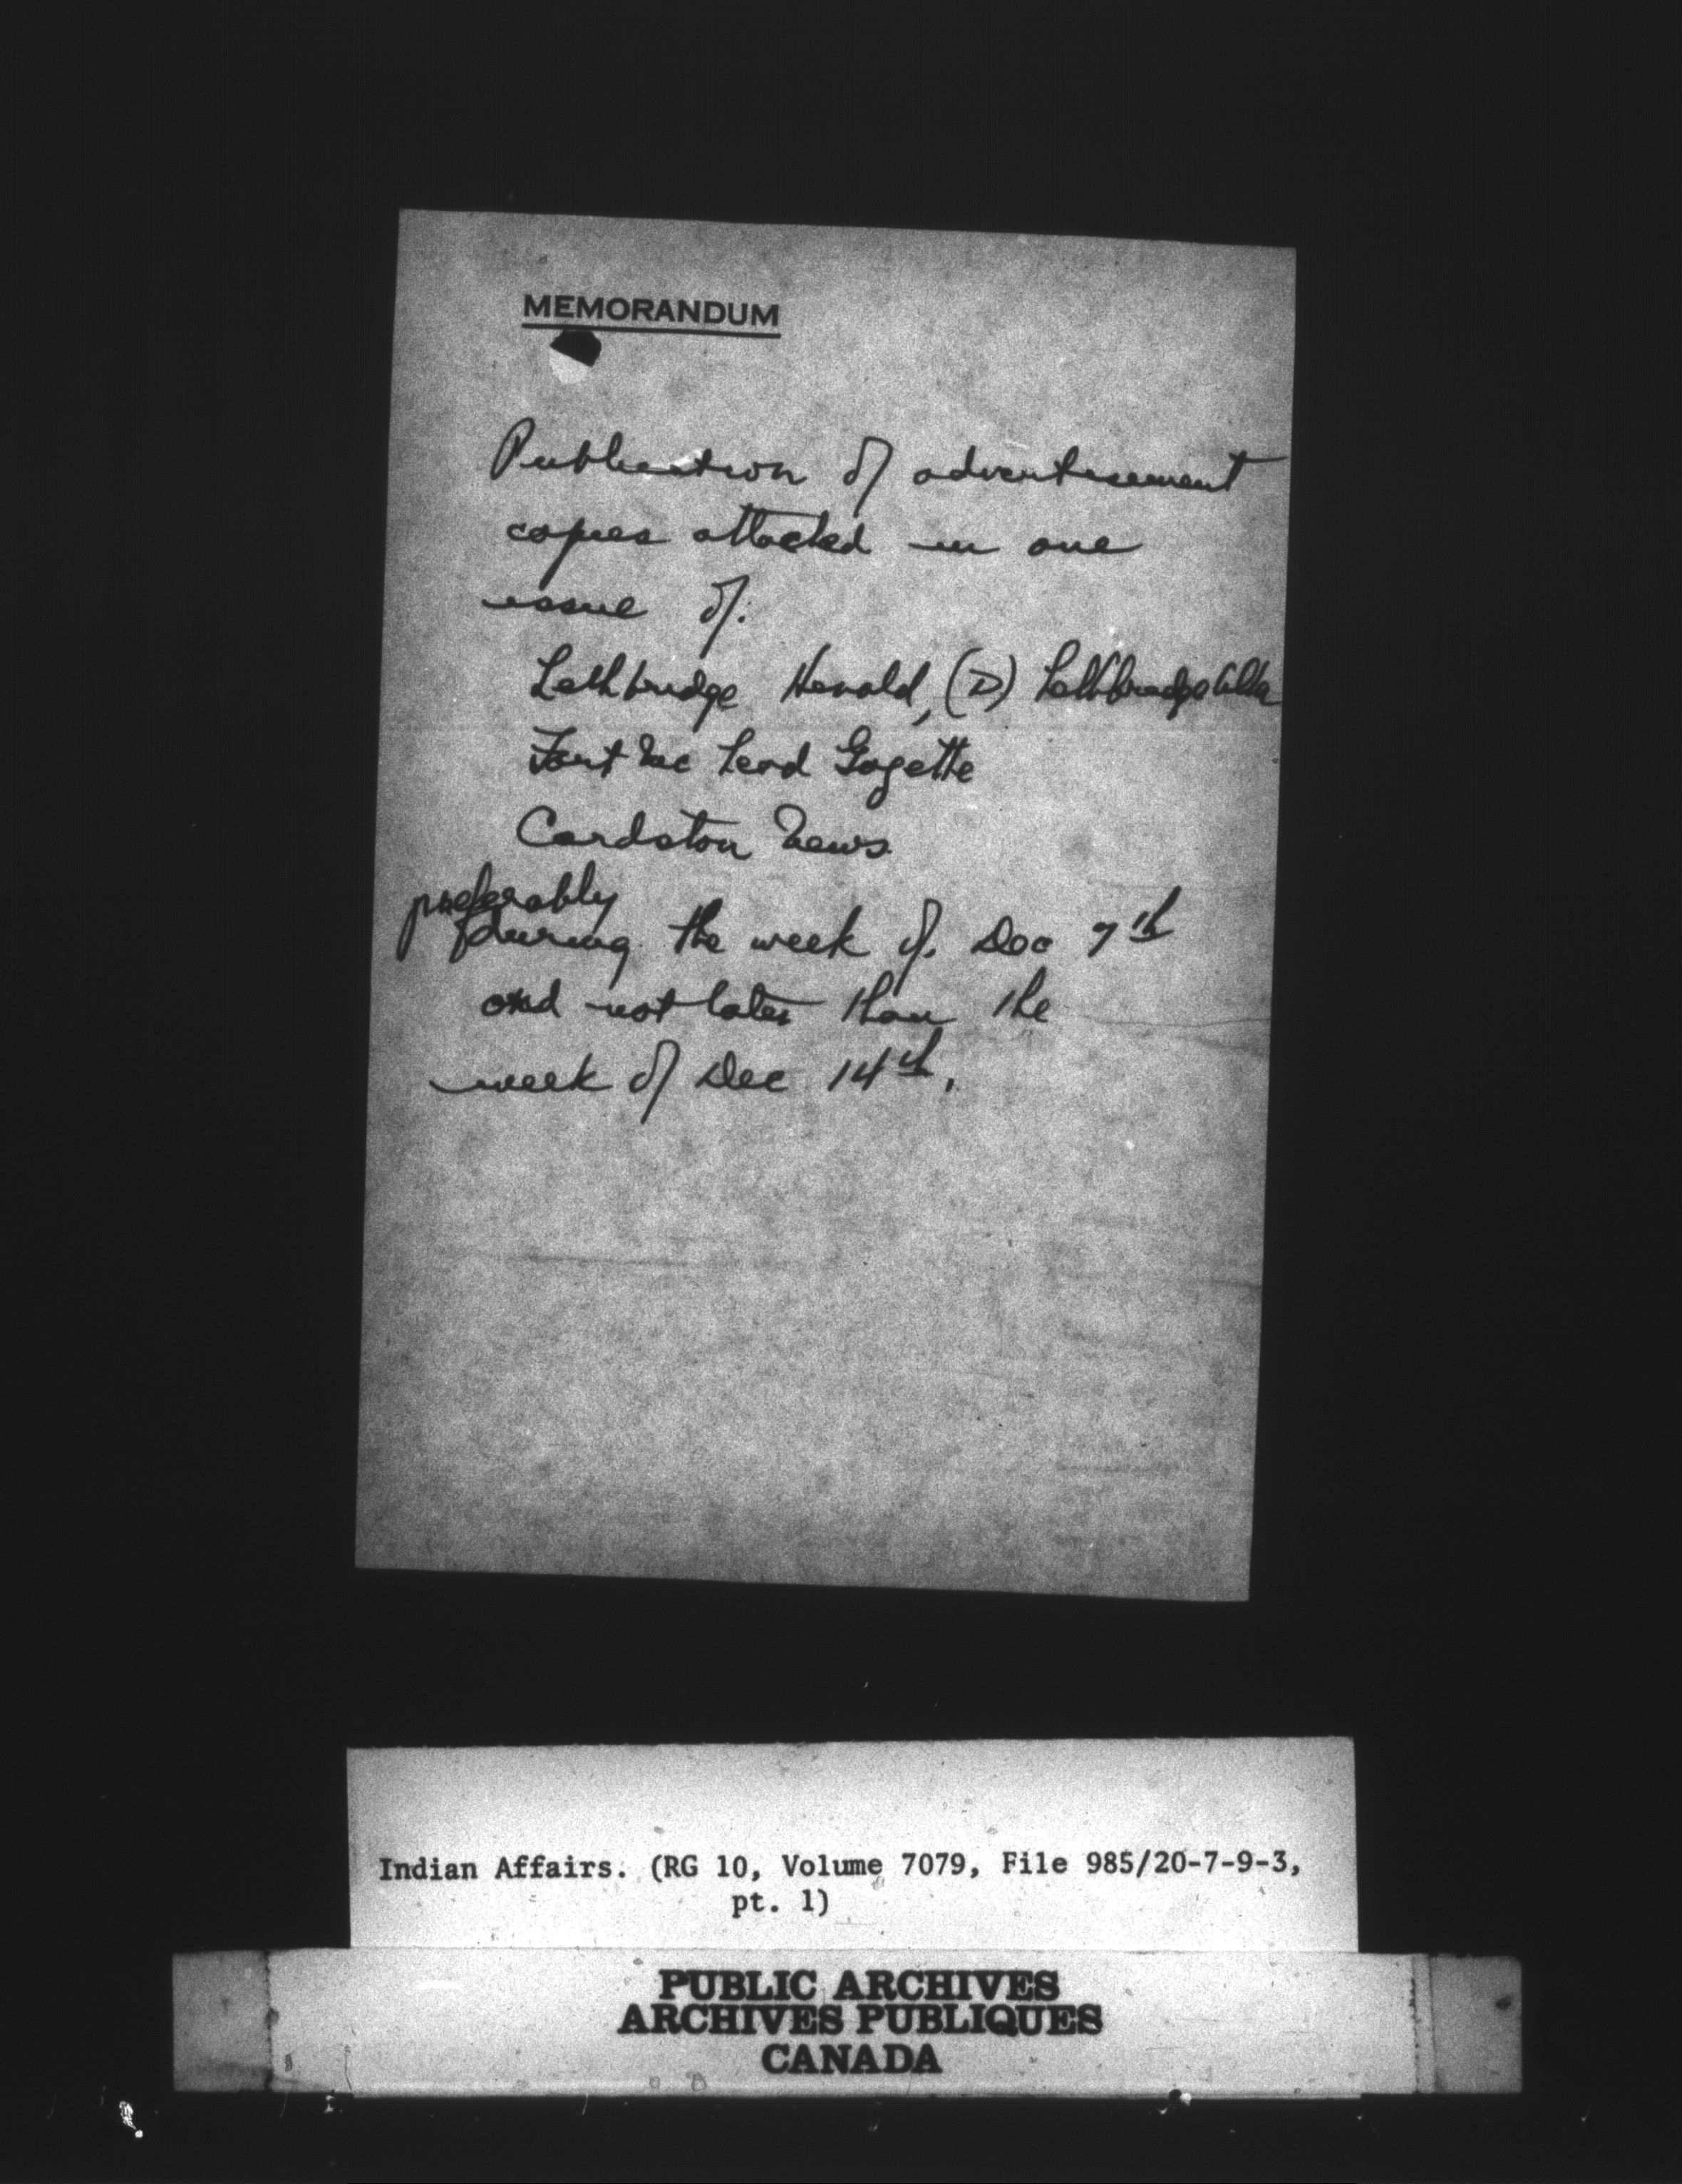 MEMORANDUM
Publication of advertisement
copies attached in one
issue of.
Lethbridge Herald, (D) Lethbridge Alta
Fort Mc Leod Gazette
Cardston News.
preferably
during the week of. Dec 7th
and not later than the
week of Dec 14th.
Indian Affairs. (RG 10, Volume 7079, File 985/20-7-9-3,
pt. 1)
PUBLIC ARCHIVES
ARCHIVES PUBLIQUES
CANADA